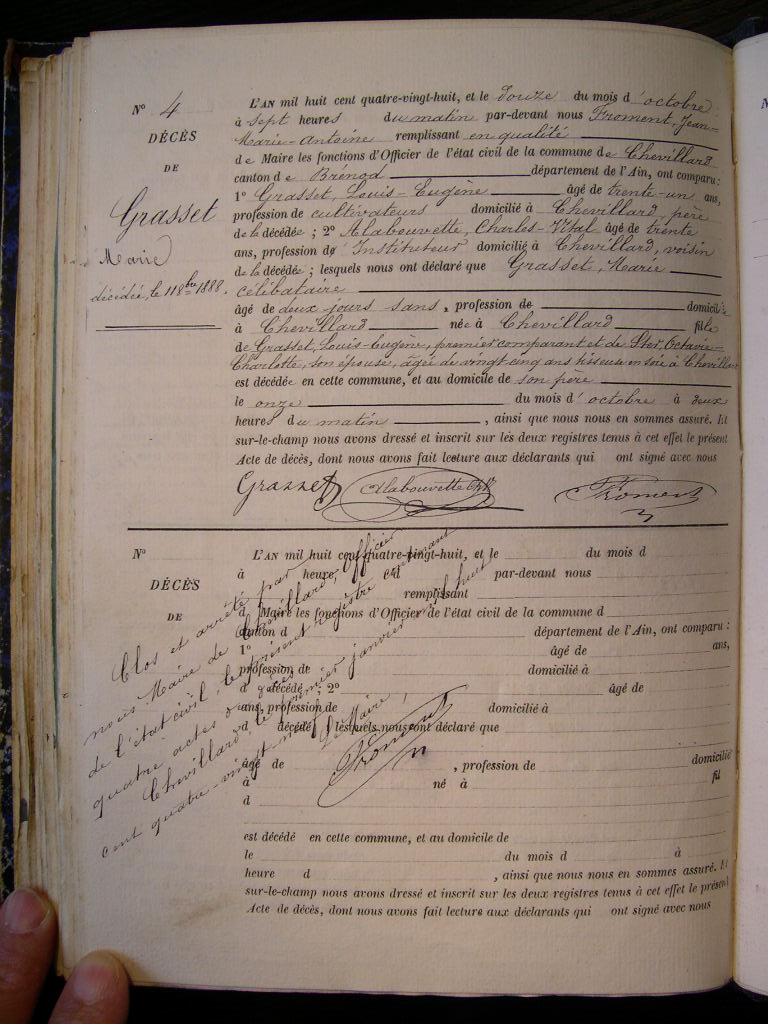 N° 4
DÉCÈS
DE
Grasset
Marie
décédée, le 11 8bre 1888.
L'AN mil huit cent quatre-vingt-huit, et le douze du mois d'octobre
à sept heures du matin par-devant nous Froment, Jean-
Marie-Antoine remplissant en qualité
de Maire les fonctions d'Officier de l'état civil de la commune de Chevillard
canton de Brénod département de l'Ain, ont comparu :
1° Grasset, Louis-Eugène âgé de trente-un ans,
profession de cultivateurs domicilié à Chevillard, père
de la décédée ; 2° Alabouvette, Charles-Vital âgé de trente
ans, profession d' Instituteur domicilié à Chevillard, voisin
de la décédée ; lesquels nous ont déclaré que Grasset, Marie
célibataire
âgé de deux jours sans, profession de domicilié
à Chevillard née à Chevillard fille
de Grasset, Louis-Eugène, premier comparant et de Octavie-
Charlotte, son épouse, âgée de vingt cinq ans tisseuse en soie à Chevillard
est décédée en cette commune, et au domicile de son père
le onze du mois d'octobre à deux
heures du matin , ainsi que nous nous en sommes assuré. Et
sur-le-champ nous avons dressé et inscrit sur les deux registres tenus à cet effet le présent
Acte de décès, dont nous avons fait lecture aux déclarants qui ont signé avec nous
Grasset Alabouvette Froment
N°
DÉCÈS
DE
L'AN mil huit cent quatre-vingt-huit, et le du mois d
à heure d par-devant nous
remplissant
d Maire les fonctions d'Officier de l'état civil de la commune d
canton d département de l'Ain, ont comparu :
1° âgé de ans,
profession de domicilié à
d décédé ; 2° âgé de
ans, profession de domicilié à
d décédé ; lesquels nous ont déclaré que
âgé de , profession de domicilié
à né à fil
d
est décédé en cette commune, et au domicile de
le du mois d à
heure d , ainsi que nous nous en sommes assuré. Et
sur-le-champ nous avons dressé et inscrit sur les deux registres tenus à cet effet le présent
Acte de décès, dont nous avons fait lecture aux déclarants qui ont signé avec nous
Clos et arrêté par
nous Maire de Chevillard, Officier
de l'état civil, le présent registre contenant
quatre actes de décès
Chevillard, le premier janvier mil huit
cent quatre-vingt neuf
Le Maire,
Froment